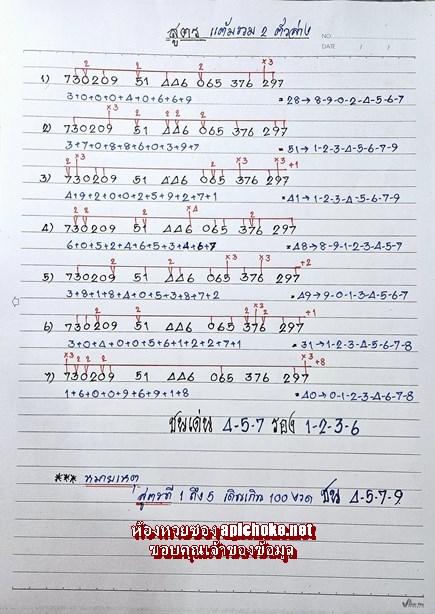 สูตร แต้มรวม 2 ตัวล่าง
NO.
DATE / /
2 2 2 x3
1) 730209 51 446 065 376 297
3+0+0+0+4+0+6+6+9 = 28→8-9-0-2-4-5-6-7
x3 2 2 2
2) 730209 51 446 065 376 297
3+7+0+8+8+6+0+3+9+7 = 51→1-2-3-4-5-6-7-9
2 x3 2 x3 x3 +1
3) 730209 51 446 065 376 297
4+9+2+0+0+2+5+9+2+7+1 = 41→1-2-3-4-5-6-7-9
2 2 2 x4 2
4) 730209 51 446 065 376 297
6+0+5+2+4+6+5+3+4+6+7 = 48→8-9-1-2-3-4-5-7
2 2 x3 x3 +2
5) 730209 51 446 065 376 297
3+8+1+8+4+0+5+3+8+7+2 = 49→9-0-1-3-4-5-6-7
2 2 2 x3 2 +1
6) 730209 51 446 065 376 297
3+0+4+0+0+5+6+1+2+2+7+1 = 31→1-2-3-4-5-6-7-8
x3 2 2 2 x3 +8
7) 730209 51 446 065 376 297
1+6+0+0+9+6+9+1+8 = 40→0-1-2-3-4-6-7-8
ชนเด่น 4-5-7 รอง 1-2-3-6
*** หมายเหตุ
สูตรที่ 1 ถึง 5 เดินเกิน 100 งวด ชน 4-5-7-9
ห้องหวยซอง aplchoke.net
ขอบคุณเจ้าของข้อมูล